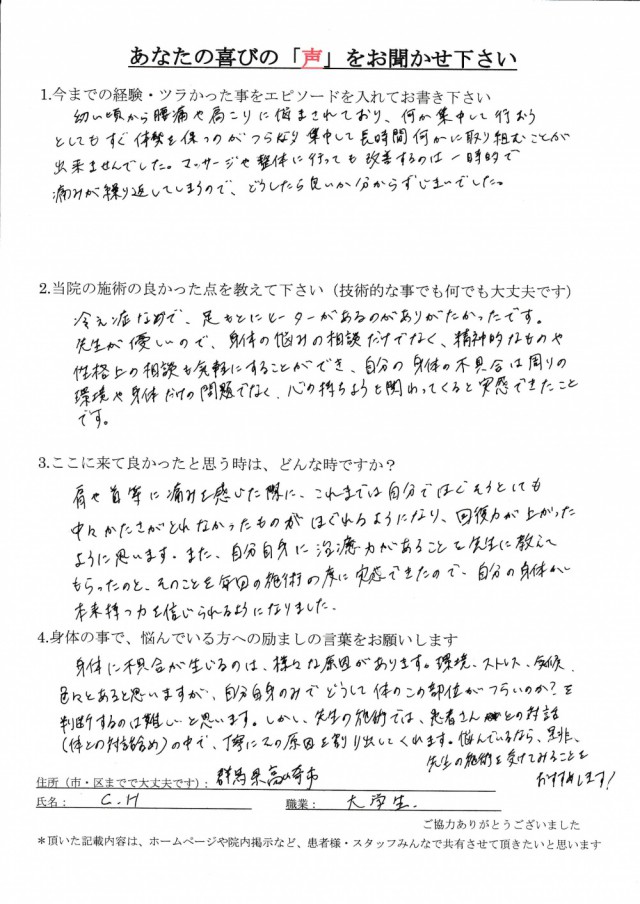 あなたの喜びの「声」をお聞かせ下さい
1.今までの経験・ツラかった事をエピソードを入れてお書き下さい
幼い頃から腰痛や肩こりに悩まされており、何か集中して行おう
としてもすぐ体勢を保つのがつらなり集中して長時間何かに取り組むことが
出来ませんでした。マッサージや整体に行っても改善するのは一時的で
痛みが繰り返してしまうので、どうしたら良いか分からずじまいでした。
2.当院の施術の良かった点を教えて下さい（技術的な事でも何でも大丈夫です）
冷え症なので、足もとにヒーターがあるのがありがたかったです。
先生が優しいので、身体の悩みの相談だけでなく、精神的なものや
性格上の相談も気軽にすることができ、自分の身体の不具合は周りの
環境や身体だけの問題でなく、心の持ちようと関わってくると実感できたこと
です。
3.ここに来て良かったと思う時は、どんな時ですか？
肩や首等に痛みを感じた際に、これまでは自分でほぐそうとしても
中々かたさがとれなかったものがほぐれるようになり、回復力が上がった
ように思います。また、自分自身に治癒力があることを先生に教えて
もらったのと、そのことを毎回の施術の度に実感できたので、自分の身体が
本来持つ力を信じられるようになりました。
4.身体の事で、悩んでいる方への励ましの言葉をお願いします
身体に不具合が生じるのは、様々な原因があります。環境、ストレス、気候、
色々とあると思いますが、自分自身のみでどうして体のこの部位がつらいのか？を
判断するのは難しいと思います。しかし、先生の施術では、患者さんとの対話
（体との対話含め）の中で、丁寧にその原因を割り出してくれます。悩んでいるなら、是非、
先生の施術を受けてみることを
おすすめします！
住所（市・区までで大丈夫です）：群馬県高崎市
氏名： C.H 職業： 大学生.
ご協力ありがとうございました
＊頂いた記載内容は、ホームページや院内掲示など、患者様・スタッフみんなで共有させて頂きたいと思います